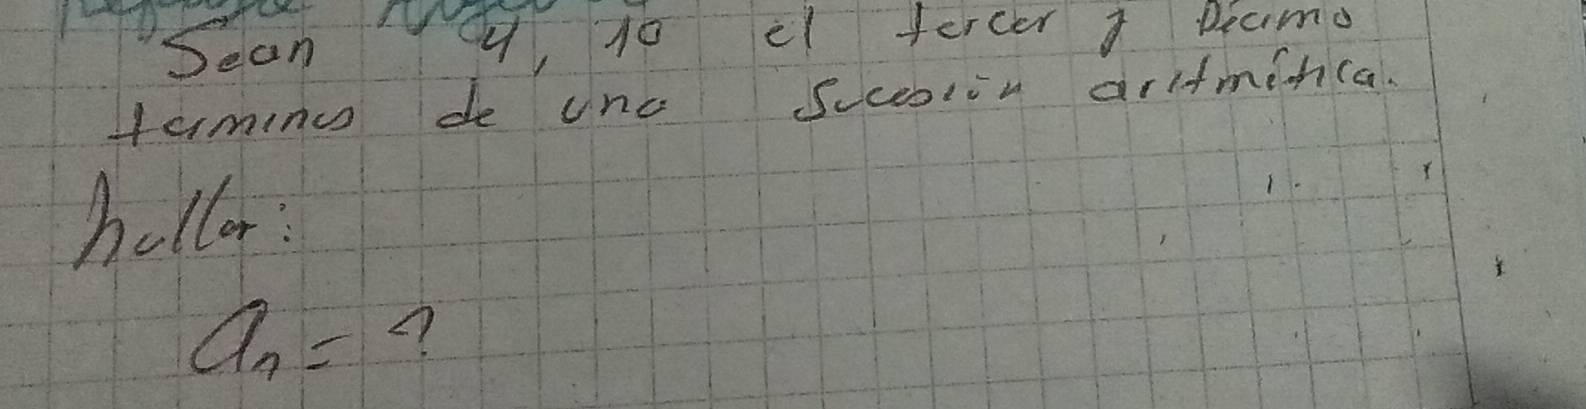 Sean 4, 10 el tercer y Décimo
terminos de una sucesión aritmética.
hallar:
an = ?